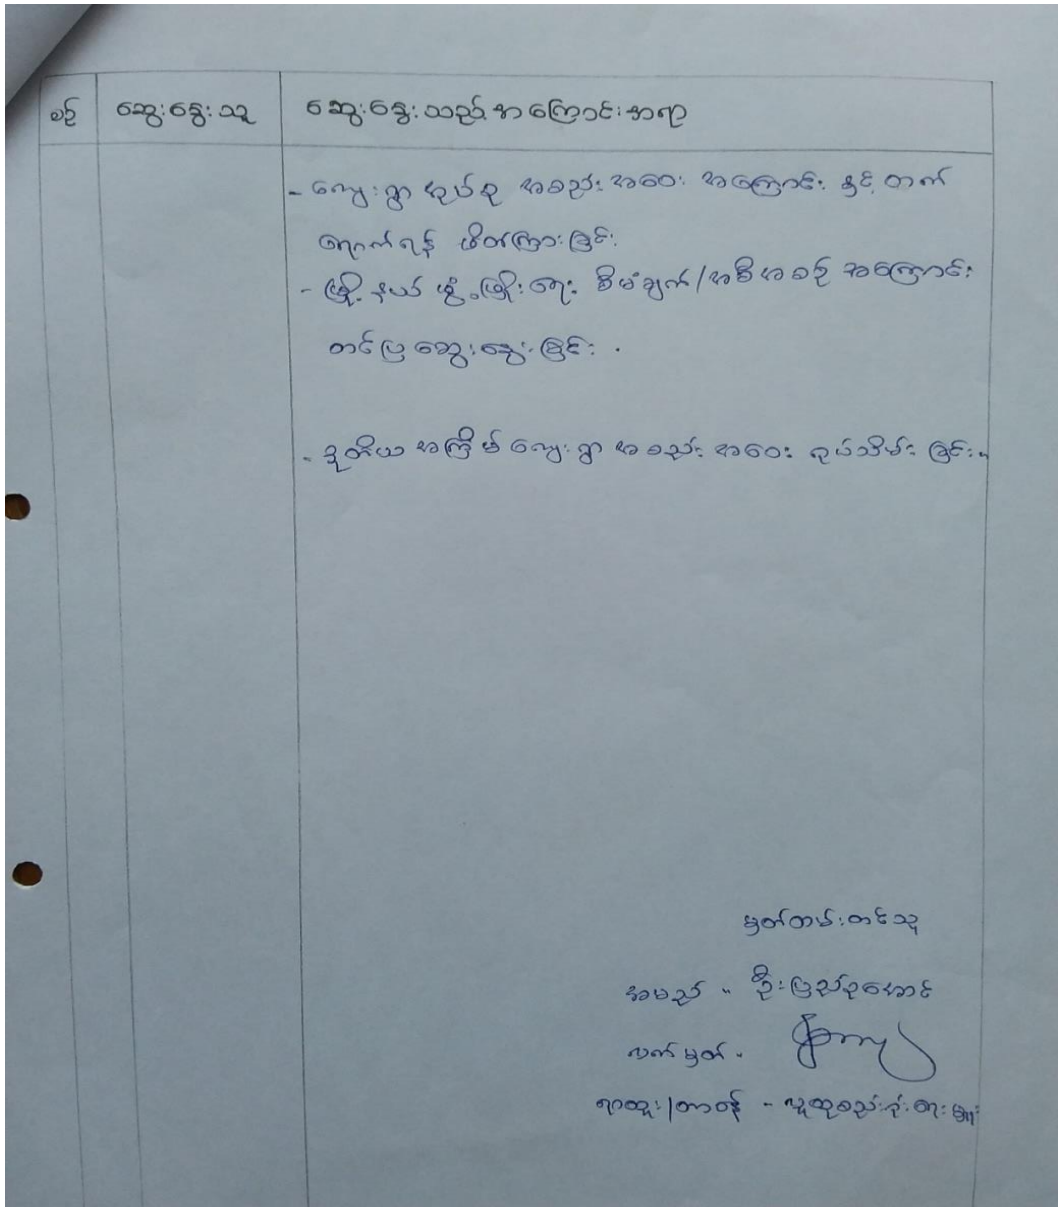 စဉ် ဆွေးနွေးသူ ဆွေးနွေးသည့်အကြောင်းအရာ
- ကျေးရွာအုပ်စု အစည်းအဝေး အကြောင်း နှင့် တက်
ရောက်ရန် ဖိတ်ကြားခြင်း
- မြို့နယ် ဖွံ့ဖြိုးရေး စီမံချက်/အစီအစဉ် အကြောင်း
တင်ပြဆွေးနွေးခြင်း .
- ဒုတိယအကြိမ် ကျေးရွာ အစည်းအဝေး ရုပ်သိမ်းခြင်း။
မှတ်တမ်းတင်သူ
အမည် - ဦးပြည်စုအောင်
လက်မှတ် -
ရာထူး/တာဝန် - လူထုစည်းရုံးရေးမှူး